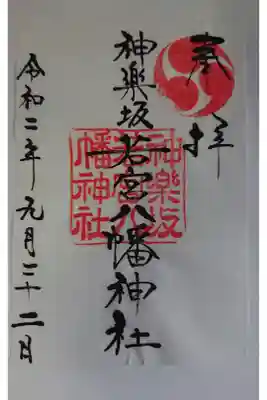 奉拝
神楽坂若宮八幡神社
神樂坂
若宮八
幡神社
令和二年元月二十二日